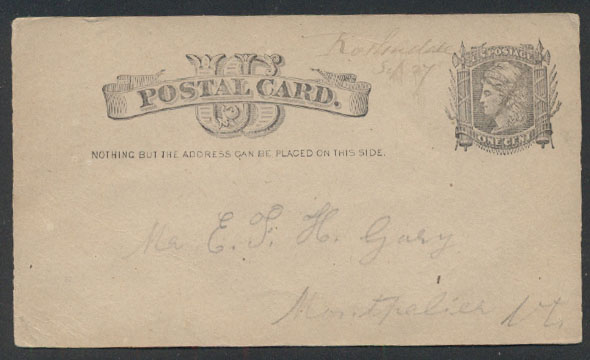 U S
POSTAL CARD.
U.S. POSTAGE
ONE CENT
NOTHING BUT THE ADDRESS CAN BE PLACED ON THIS SIDE.
Mr E. F. H. Gary
Montpalier Vt.